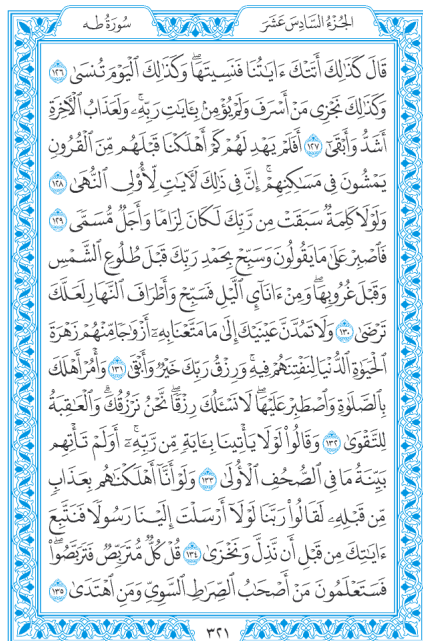 الجزء السادس عشر
سورة طه
قَالَ كَذَٰلِكَ أَتَتْكَ ءَايَٰتُنَا فَنَسِيتَهَاۖ وَكَذَٰلِكَ ٱلْيَوْمَ تُنسَىٰ ١٢٦
وَكَذَٰلِكَ نَجْزِى مَنْ أَسْرَفَ وَلَمْ يُؤْمِنۢ بِـَٔايَٰتِ رَبِّهِۦۚ وَلَعَذَابُ ٱلْءَاخِرَةِ
أَشَدُّ وَأَبْقَىٰٓ ١٢٧ أَفَلَمْ يَهْدِ لَهُمْ كَمْ أَهْلَكْنَا قَبْلَهُم مِّنَ ٱلْقُرُونِ
يَمْشُونَ فِى مَسَٰكِنِهِمْۗ إِنَّ فِى ذَٰلِكَ لَءَايَٰتٍ لِّأُو۟لِى ٱلنُّهَىٰ ١٢٨
وَلَوْلَا كَلِمَةٌ سَبَقَتْ مِن رَّبِّكَ لَكَانَ لِزَامًا وَأَجَلٌ مُّسَمًّى ١٢٩
فَٱصْبِرْ عَلَىٰ مَا يَقُولُونَ وَسَبِّحْ بِحَمْدِ رَبِّكَ قَبْلَ طُلُوعِ ٱلشَّمْسِ
وَقَبْلَ غُرُوبِهَاۖ وَمِنْ ءَانَآئِ ٱلَّيْلِ فَسَبِّحْ وَأَطْرَافَ ٱلنَّهَارِ لَعَلَّكَ
تَرْضَىٰ ١٣٠ وَلَا تَمُدَّنَّ عَيْنَيْكَ إِلَىٰ مَا مَتَّعْنَا بِهِۦٓ أَزْوَٰجًا مِّنْهُمْ زَهْرَةَ
ٱلْحَيَوٰةِ ٱلدُّنْيَا لِنَفْتِنَهُمْ فِيهِۚ وَرِزْقُ رَبِّكَ خَيْرٌ وَأَبْقَىٰ ١٣١ وَأْمُرْ أَهْلَكَ
بِٱلصَّلَوٰةِ وَٱصْطَبِرْ عَلَيْهَاۖ لَا نَسْـَٔلُكَ رِزْقًاۖ نَّحْنُ نَرْزُقُكَۗ وَٱلْعَٰقِبَةُ
لِلتَّقْوَىٰ ١٣٢ وَقَالُوا۟ لَوْلَا يَأْتِينَا بِـَٔايَةٍ مِّن رَّبِّهِۦٓۚ أَوَلَمْ تَأْتِهِم
بَيِّنَةُ مَا فِى ٱلصُّحُفِ ٱلْأُولَىٰ ١٣٣ وَلَوْ أَنَّآ أَهْلَكْنَٰهُم بِعَذَابٍ
مِّن قَبْلِهِۦ لَقَالُوا۟ رَبَّنَا لَوْلَآ أَرْسَلْتَ إِلَيْنَا رَسُولًا فَنَتَّبِعَ
ءَايَٰتِكَ مِن قَبْلِ أَن نَّذِلَّ وَنَخْزَىٰ ١٣٤ قُلْ كُلٌّ مُّتَرَبِّصٌ فَتَرَبَّصُوا۟ۖ
فَسَتَعْلَمُونَ مَنْ أَصْحَٰبُ ٱلصِّرَٰطِ ٱلسَّوِىِّ وَمَنِ ٱهْتَدَىٰ ١٣٥
٣٢١